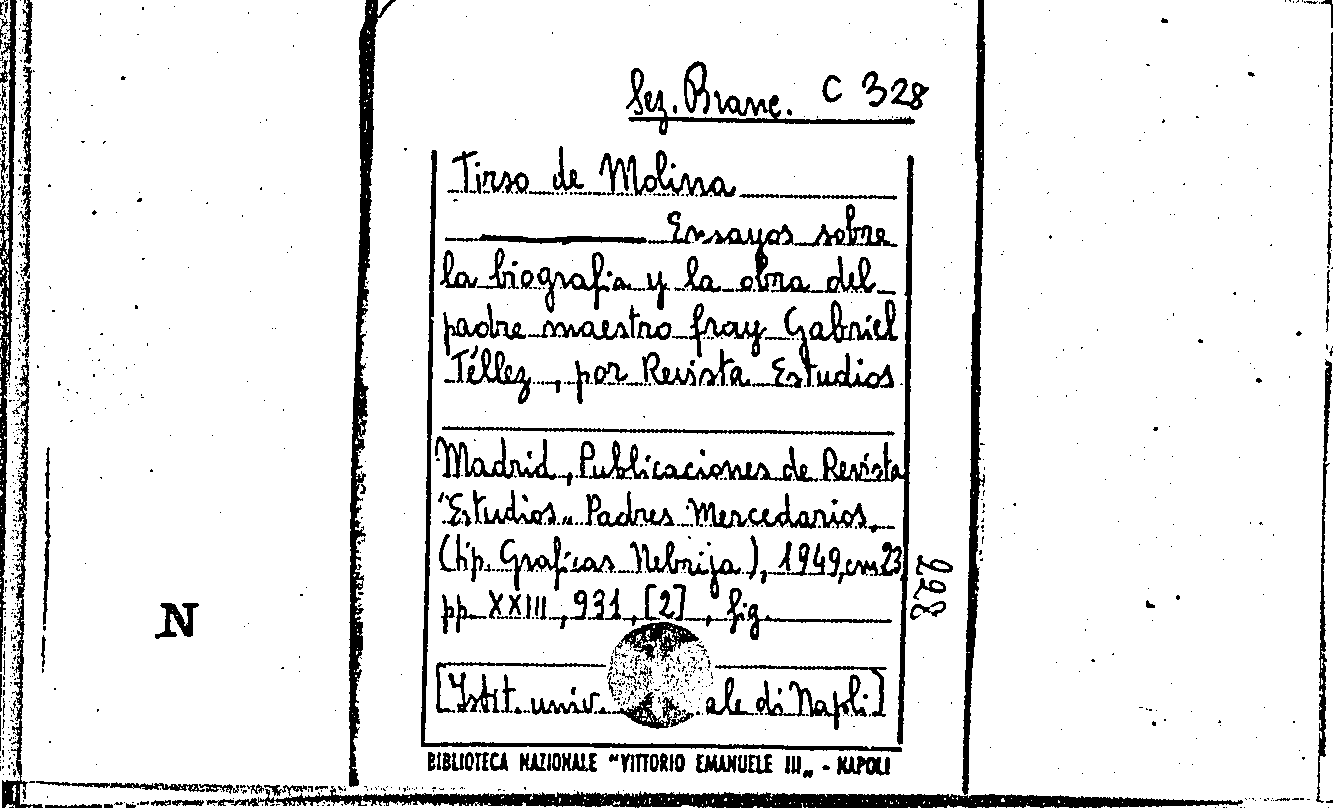 Sez. Branc. C 328
Tirso de Molina
Ensayos sobre
la biografia y la obra del
padre maestro fray Gabriel
Téllez, por Revista Estudios
Madrid, Publicaciones de Revista
"Estudios„ Padres Mercedarios,
(tip. Graficas Nebrija), 1949, cm 23
pp. XXIII, 931, [2], fig.
[Istit. univ. ale di Napoli]
BIBLIOTECA NAZIONALE "VITTORIO EMANUELE III„ - NAPOLI
298
N